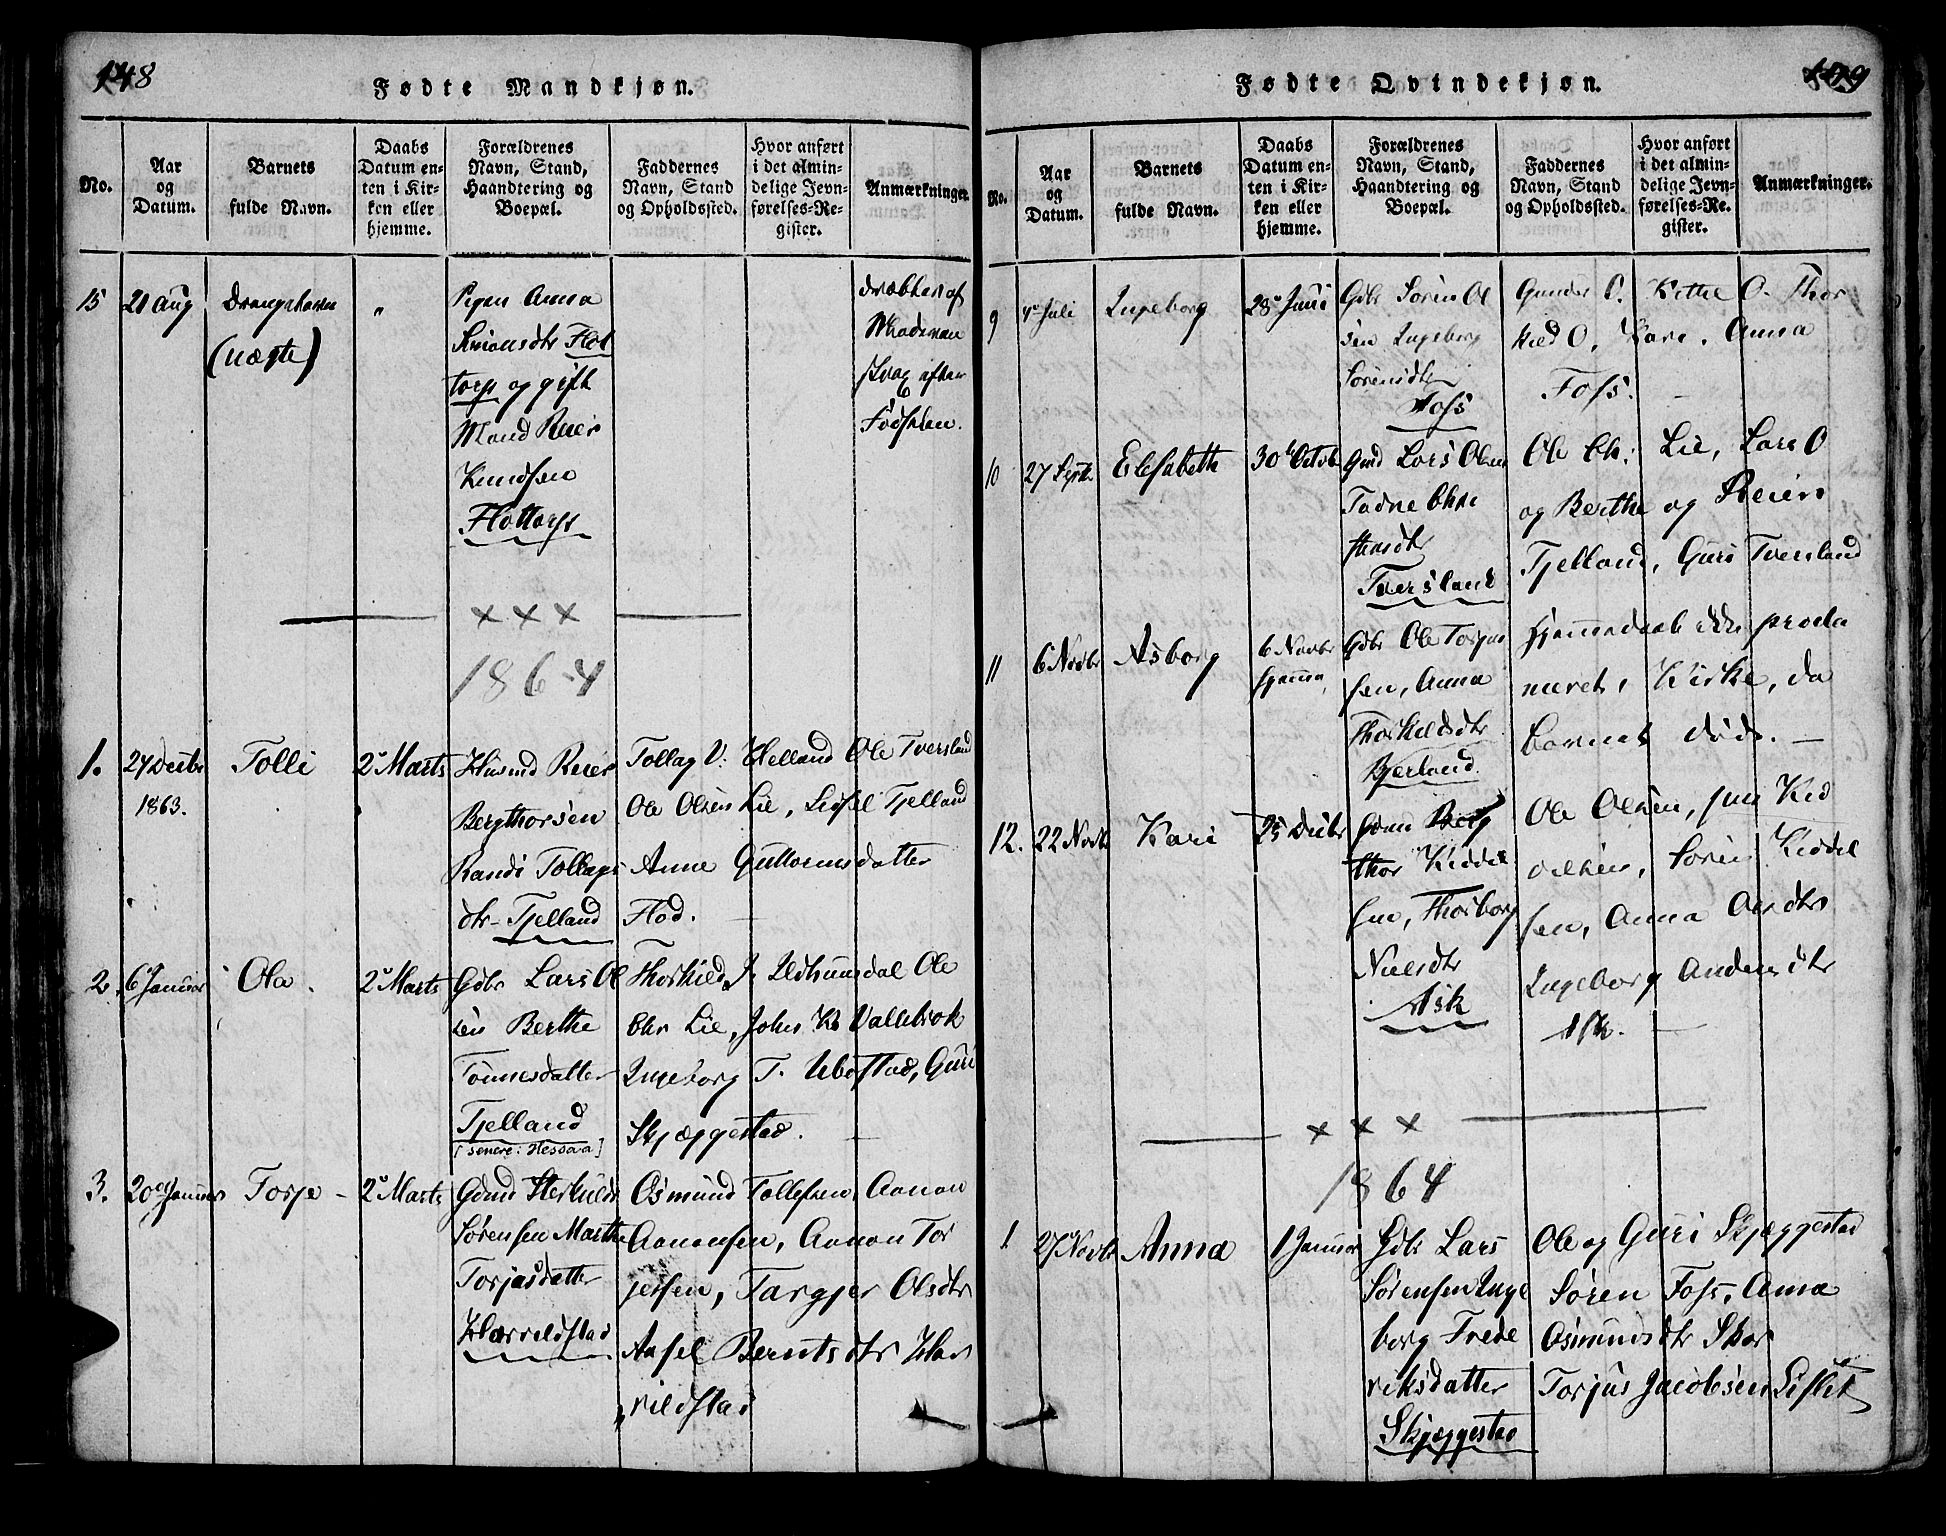 148
Fødte Mandkjøn.
No.
Aar
og
Datum.
Barnets
fulde Navn.
Daabs
Datum en-
ten i Kir-
ken eller
hjemme.
Forældrenes
Navn, Stand,
Haandtering og
Boepæl.
Faddernes
Navn, Stand
og Opholdssted.
Hvor anført
i det almin-
delige Jevn-
førelses-Re-
gister.
Anmærkninger.
15 21 Aug Drengebarn "
(nægte)
Pigen Anna
Simonsdtr Flot
torp og gift
Mand Reier
Knudsen
Flottorp
dræbt af
Moderen
strax efter
Fødselen.
× × ×
1864
1. 27 Decbr
1863.
Tolli
2 Marts
Husmd Reier
Bergthorsen
Randi Tollags
dtr Tjelland
Tollag V: Helland Ole Tversland
Ole Olsen Lie, Sidsel Tjelland
Anne Guttormsdatter
Flod.
2. 6 Januar Ola. 2 Marts
Gdbr Lars Ol
sen Berthe
Tønnesdatter
Tjelland
[senere: Hessaa]
Thorkild J. Udhunsdal Ole
Chr Lie, John K Vallebrok
Ingeborg T. Ubostad, Guri
Skjæggestad.
3. 20 Januar Torje - 2 Marts
Gdmd Sterkild
Sørensen Marthe
Torjusdatter
Harvildstad
Osmund Tollefsen, Aanon
Aanonsen, Aanon Tor
jessen, Targjer Olsdtr
Assel Berntsdtr Har
vildstad
Fødte Qvindekjøn.
No.
Aar
og
Datum.
Barnets
fulde Navn.
Daabs
Datum en-
ten i Kir-
ken eller
hjemme.
Forældrenes
Navn, Stand,
Haandtering og
Boepæl.
Faddernes
Navn, Stand
og Opholdssted.
Hvor anført
i det almin-
delige Jevn-
førelses-Re-
gister.
Anmærkninger.
9 4 Juli Ingeborg 28 Juni
Gdbr Søren Ol
sen Ingeborg
Sørensdtr
Foss
Gunder O. Kethe O. Thor
kild O, Kari, Anna
Foss.
10 27 Septbr Elisabeth 30 Octobr
Gmd Lars Olsen
Tadne Chri
stensdtr
Tversland
Ole Chr: Lie, Lars O
og Berthe og Reier
Tjelland, Guri Tversland
11 6 Novbr Asborg
6 Novbr
hjemme
Gdbr Ole Torjus
sen, Anna
Thorkildsdtr
Bjerland
Hjemmedaab ikke produ
ceret i Kirke, da
barnet døde.
12. 22 Novbr Kari 25 Decbr
Gdmd Berg
thor Kiddel
sen, Thorborg
Nielsdtr
Ask
Ole Olsen, Kid
delsen, Søren Kiddel
sen, Anna
Ingeborg Andersdtr
Ask.
× × ×
1864
1. 27 Novbr Anna 1 Januar
Gdbr Lars
Sørensen Inge
borg Frede
riksdatter
Skjæggestad
Ole og Guri Skjæggestad
Søren Foss, Anna
Osmundsdtr Skor
Torjus Jacobsen Lislet